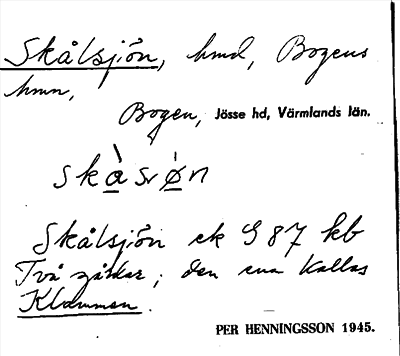 Skålsjön, hmd, Bogens
hmn,
Bogen, Jösse hd, Värmlands län.
skàsrøn
Skålsjön ek 987 kb
Två gårdar; den ena kallas
Klammen.
PER HENNINGSSON 1945.